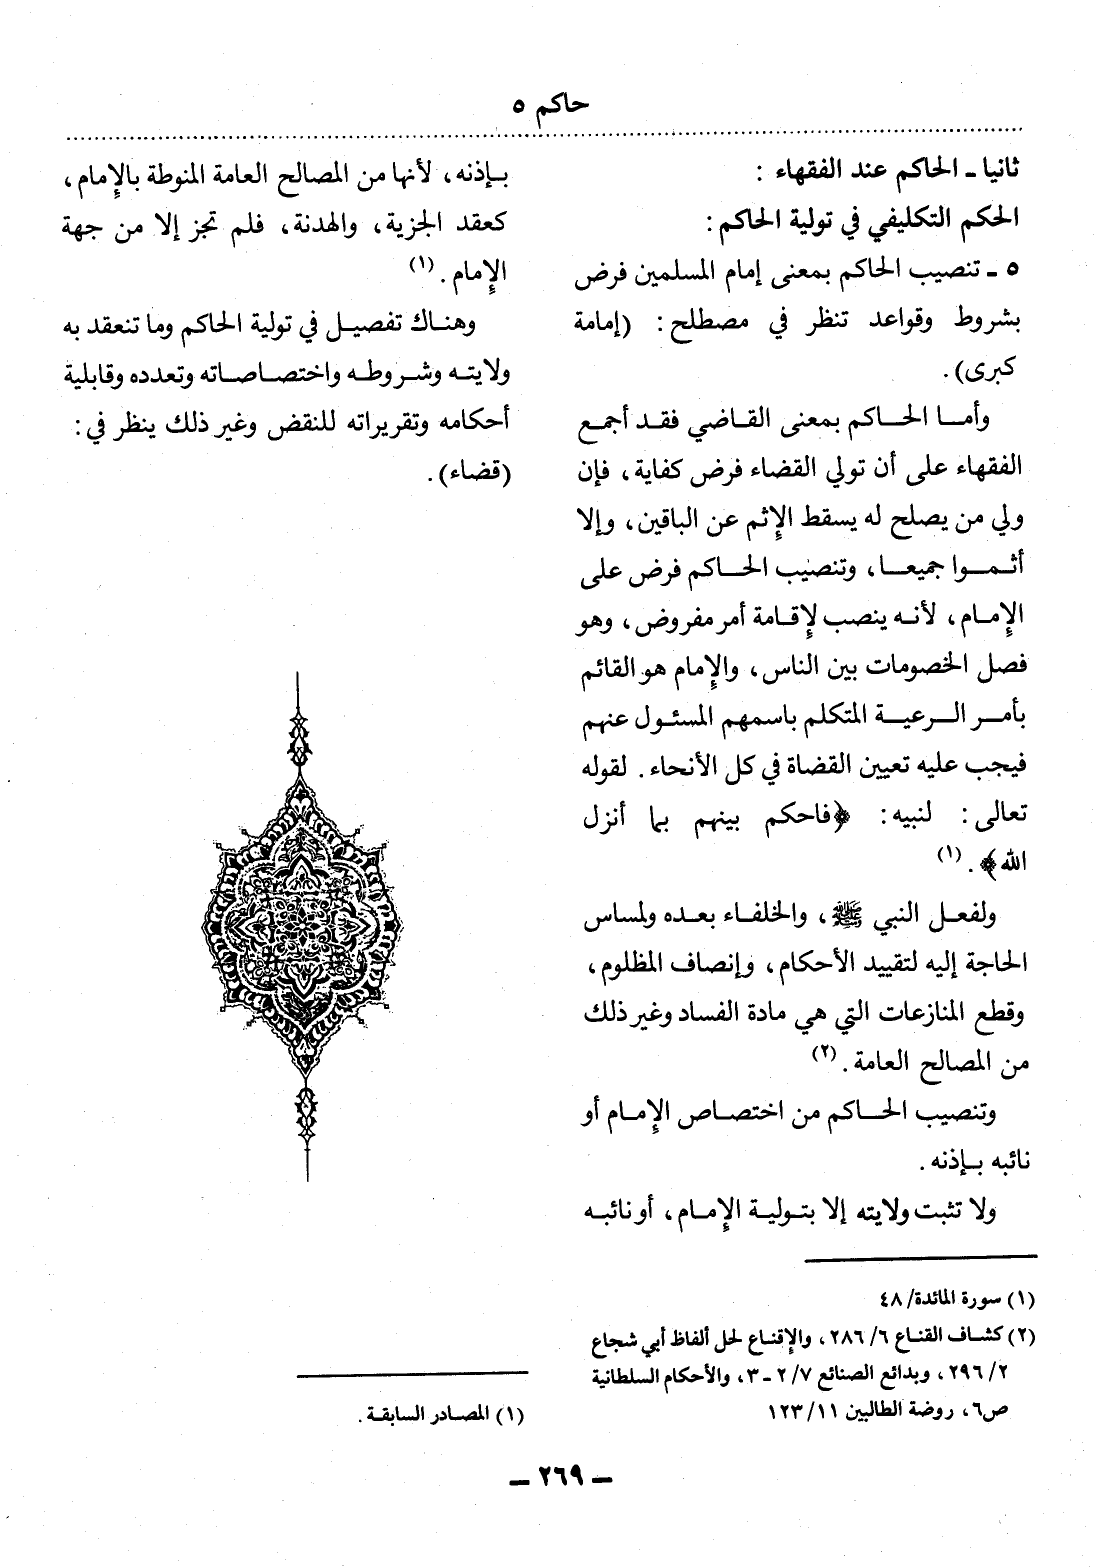 حاكم ٥
ثانيا ـ الحاكم عند الفقهاء :
الحكم التكليفي في تولية الحاكم :
٥ ـ تنصيب الحاكم بمعنى إمام المسلمين فرض
بشروط وقواعد تنظر في مصطلح : (إمامة
كبرى) .
وأما الحاكم بمعنى القاضي فقد أجمع
الفقهاء على أن تولي القضاء فرض كفاية ، فإن
ولي من يصلح له يسقط الإثم عن الباقين ، وإلا
أثموا جميعا ، وتنصيب الحاكم فرض على
الإمام ، لأنه ينصب لإقامة أمر مفروض ، وهو
فصل الخصومات بين الناس ، والإمام هو القائم
بأمر الرعية المتكلم باسمهم المسئول عنهم
فيجب عليه تعيين القضاة في كل الأنحاء . لقوله
تعالى : لنبيه : ﴿فاحكم بينهم بما أنزل
الله﴾ . (١)
ولفعل النبي ﷺ ، والخلفاء بعده ولمساس
الحاجة إليه لتقييد الأحكام ، وإنصاف المظلوم ،
وقطع المنازعات التي هي مادة الفساد وغير ذلك
من المصالح العامة . (٢)
وتنصيب الحاكم من اختصاص الإمام أو
نائبه بإذنه .
ولا تثبت ولايته إلا بتولية الإمام ، أو نائبه
(١) سورة المائدة/ ٤٨
(٢) كشاف القناع ٦/ ٢٨٦ ، والإقناع لحل ألفاظ أبي شجاع
٢/ ٢٩٦ ، وبدائع الصنائع ٧/ ٢ ـ ٣ ، والأحكام السلطانية
ص٦ ، روضة الطالبين ١١/ ١٢٣
بإذنه ، لأنها من المصالح العامة المنوطة بالإمام ،
كعقد الجزية ، والهدنة ، فلم تجز إلا من جهة
الإمام . (١)
وهناك تفصيل في تولية الحاكم وما تنعقد به
ولايته وشروطه واختصاصاته وتعدده وقابلية
أحكامه وتقريراته للنقض وغير ذلك ينظر في :
(قضاء) .
(١) المصادر السابقة .
ـ ٢٦٩ ـ